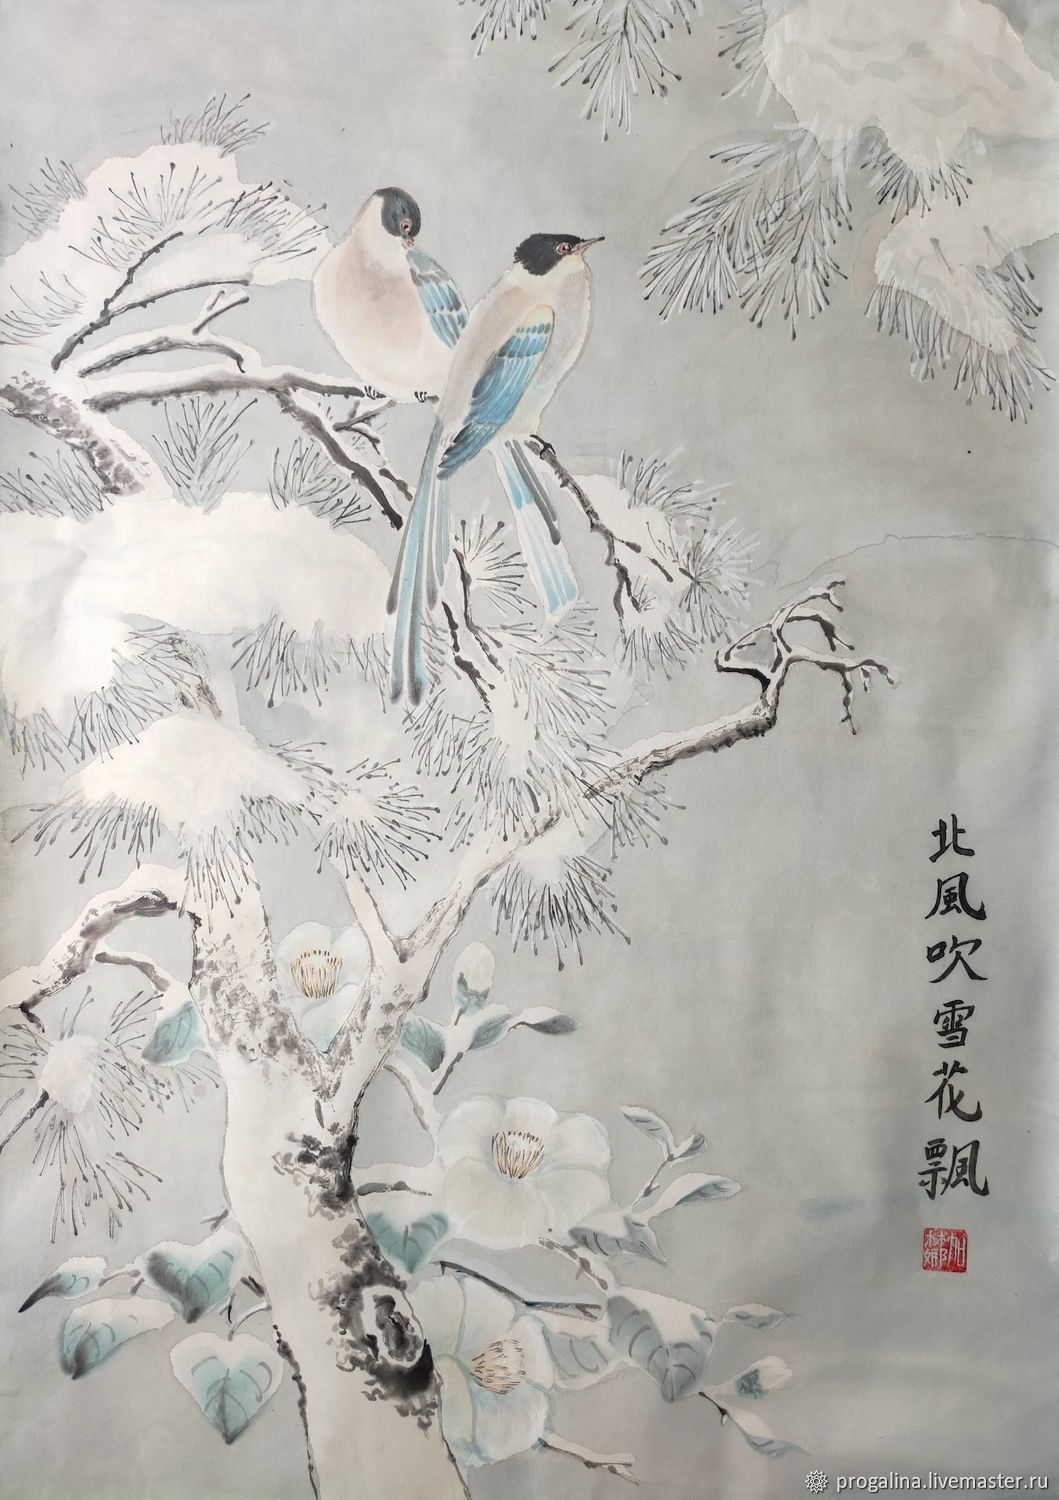 北風吹雪花飄
progalina.livemaster.ru